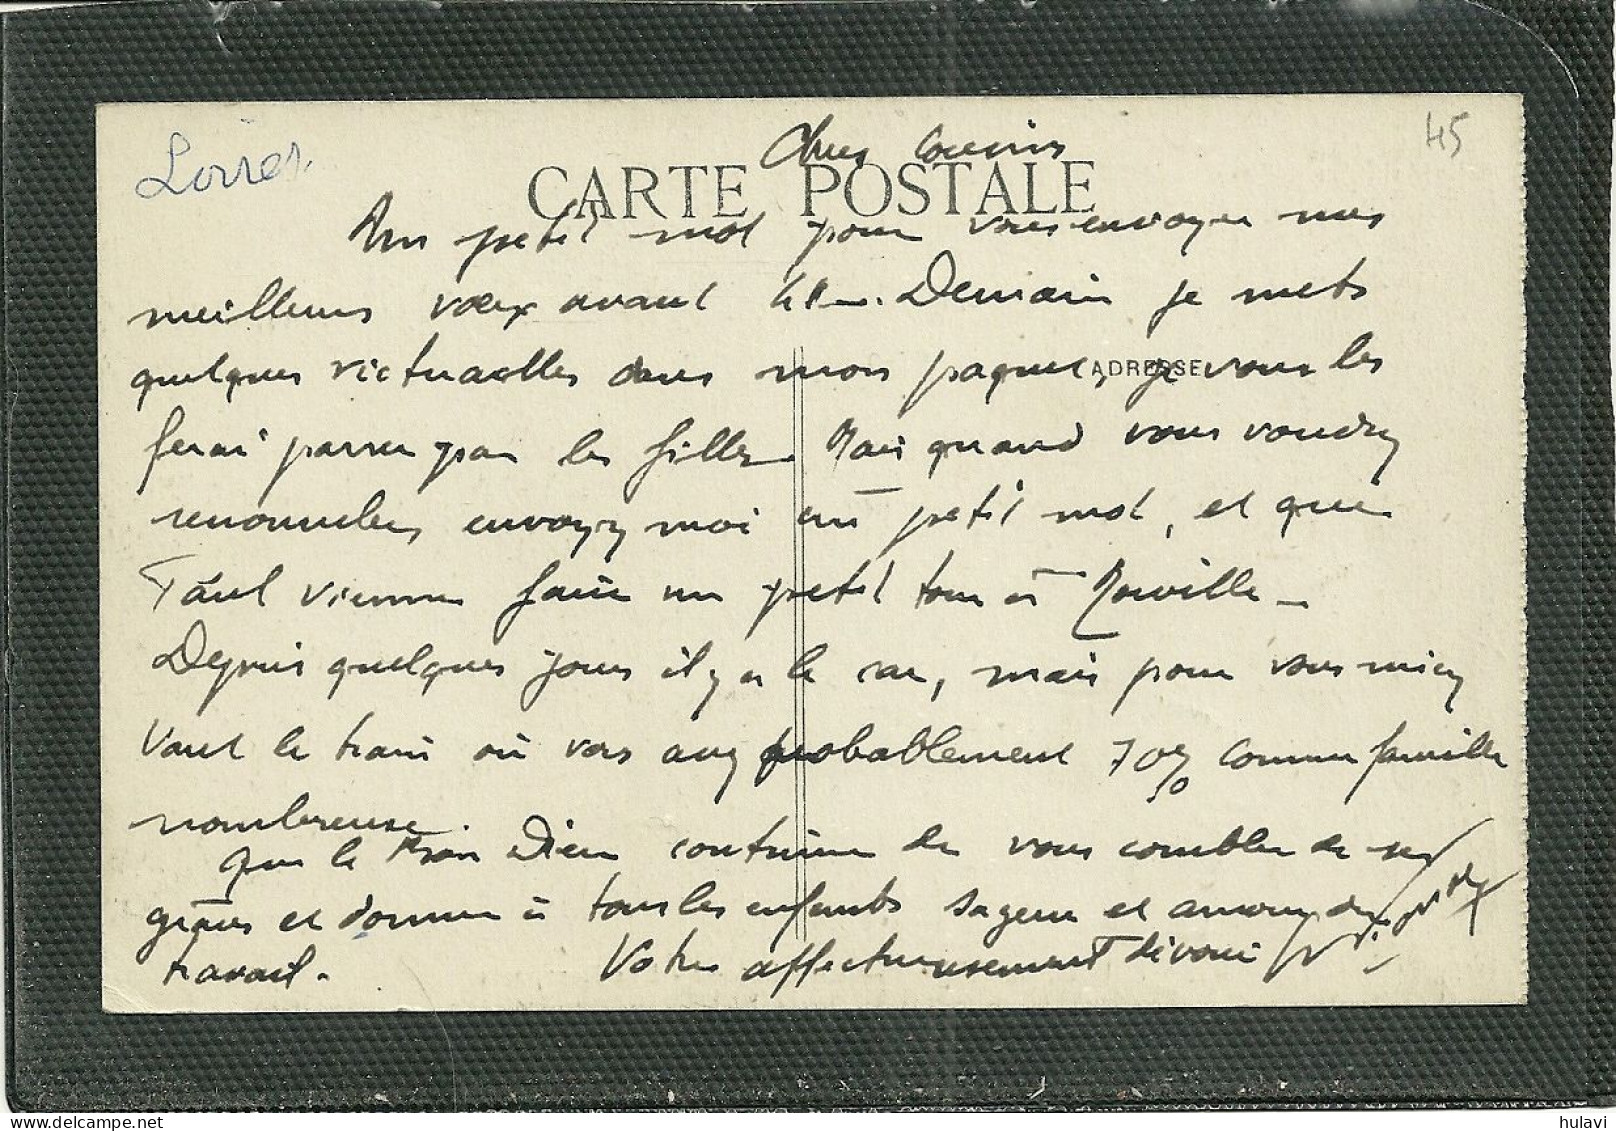 Loiret
45
Chers Cousins
CARTE POSTALE
Un petit mot pour vous envoyer mes
meilleurs vœux avant Demain je mets
quelques victuailles dans mon paquet, je vous les
ADRESSE
ferai passer par les filles. Mais quand vous voudrez
renouveler envoyez moi un petit mot, et que
Paul vienne faire un petit tour à Morville _
Depuis quelques jours il y a le car, mais pour vous mieux
Vaut le train où vous avez probablement 70% comme famille
nombreuse.
Que le Bon Dieu continue de vous combler de ses
grâces et donne à tous les enfants sagesse et amour du
travail. Votre affectueusement dévoué
hulavi